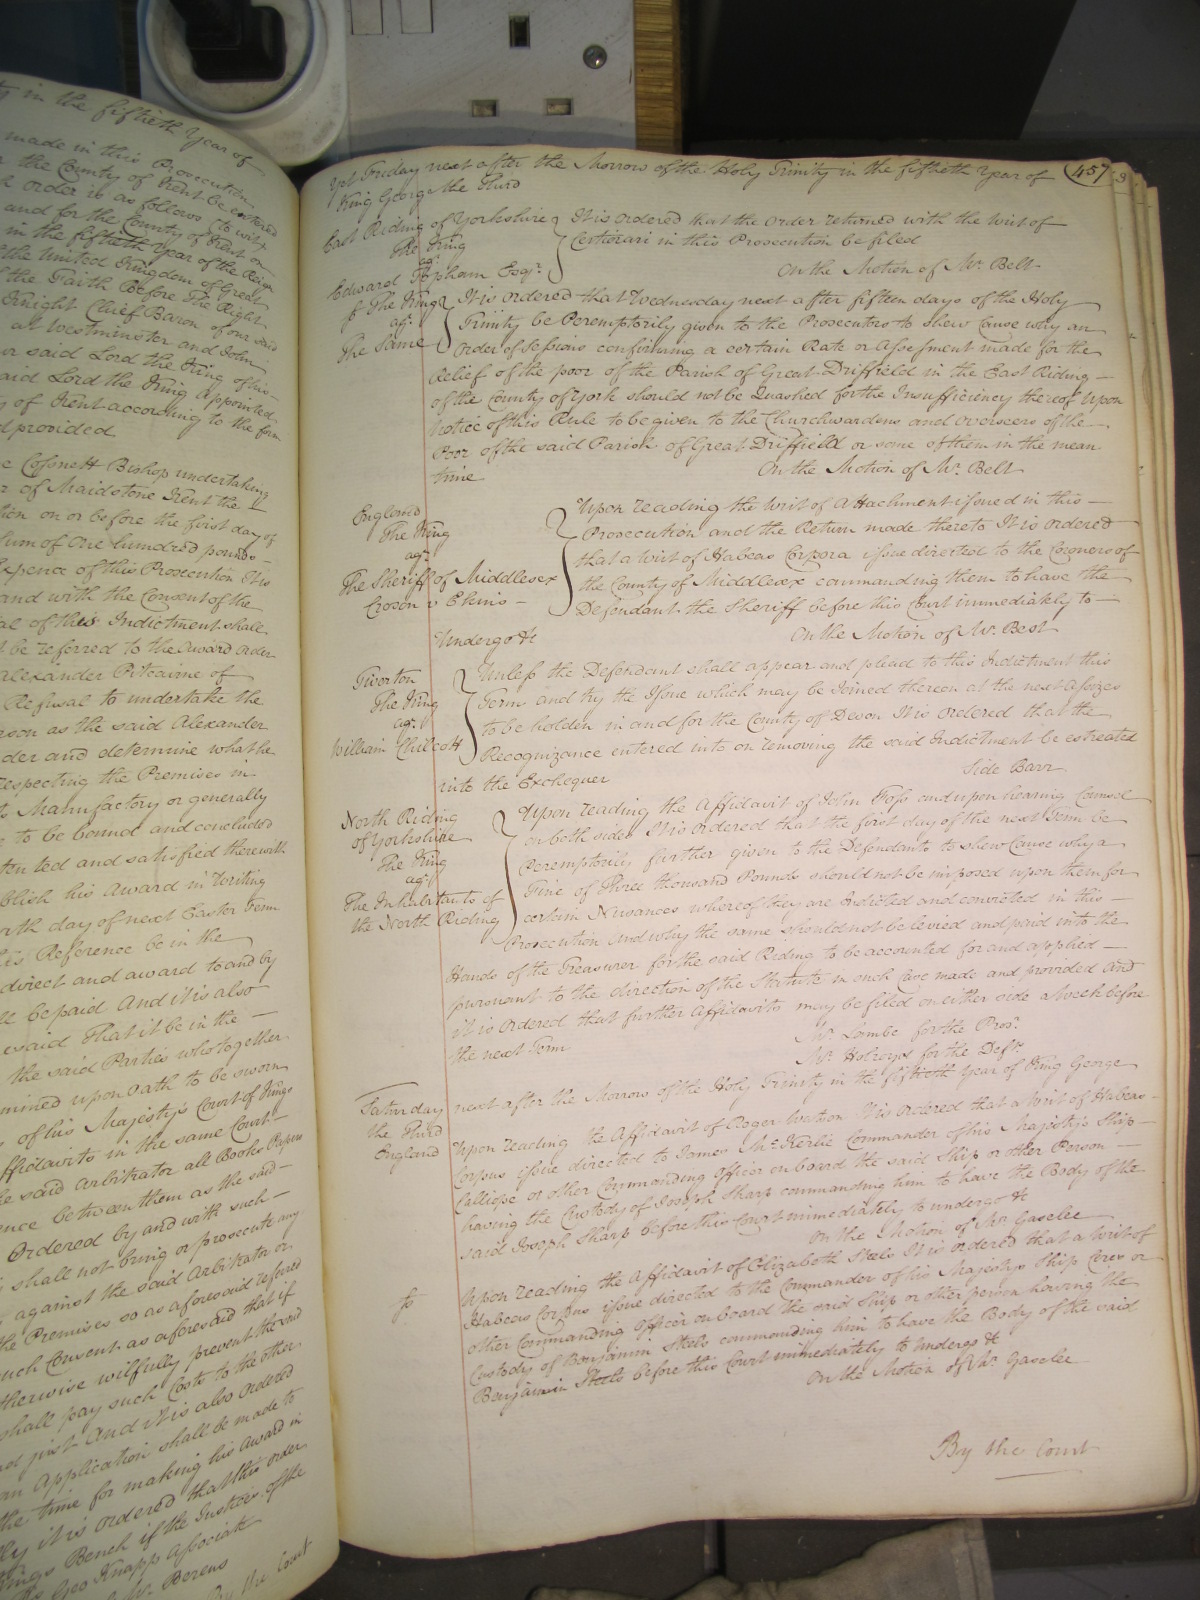 ty in the fiftieth Year of
made in this Prosecution
the County of Kent be entered
order is as follows to wit
and for the County of Kent on
in the fiftieth Year of the Reign
the United Kingdom of Great
the Faith Before The Right
Knight Chief Baron of our said
at Westminster and John
our said Lord the King of his
said Lord the King appointed
of Kent according to the form
d provided
Colonett Bishop undertaking
of Maidstone Kent the
tion on or before the first day of
Sum of One hundred pounds
Expence of this Prosecution It is
and with the Consent of the
of this Indictment shall
be referred to the Award order
Alexander Pitcairne of
Refusal to undertake the
Person as the said Alexander
order and determine what he
respecting the Premises in
Manufactory or generally
to be bound and concluded
tented and satisfied therewith
blish his Award in Writing
day of next Easter Term
this Reference be in the
direct and award to and by
be paid And it is also
said That it be in the
the said Parties who together
mined upon Oath to be sworn
of his Majesty's Court of Kings
Affidavits in the same Court
the said Arbitrator all Books Papers
between them as the said
Ordered by and with such
shall not bring or prosecute any
against the said Arbitrator or
the Premises so as aforesaid referred
such Consent as aforesaid that if
otherwise wilfully prevent the said
shall pay such Costs to the other
and just And it is also Ordered
an Application shall be made to
the time for making his Award in
it is ordered that this order
Kings Bench if the Justices of the
Geo Knapp Associate
Mr. Berens
By the Court
457
Yet Friday next after the Morrow of the Holy Trinity in the fiftieth Year of
King George the Third
East Riding of Yorkshire It is ordered that the Order returned with the Writ of
The King Certiorari in this Prosecution be filed
agt.
Edward Topham Esqr. On the Motion of Mr. Belt
The King It is ordered that Wednesday next after fifteen days of the Holy
agt. Trinity be Peremptorily given to the Prosecutors to shew Cause why an
The Same Order of Sessions confirming a certain Rate or Assessment made for the
Relief of the poor of the Parish of Great Driffield in the East Riding
of the County of York should not be Quashed for the Insufficiency thereof Upon
Notice of this Rule to be given to the Churchwardens and Overseers of the
Poor of the said Parish of Great Driffield or some of them in the mean
time On the Motion of Mr. Belt
England Upon reading the Writ of Attachment issued in this
The King Prosecution and the Return made thereto It is ordered
agt. that a Writ of Habeas Corpora issue directed to the Coroners of
The Sheriff of Middlesex the County of Middlesex commanding them to have the
Croson v Ekins Defendant the Sheriff before this Court immediately to
Undergo &c On the Motion of Mr. Best
Tiverton Unless the Defendant shall appear and plead to this Indictment this
The King Term and try the Issue which may be Joined thereon at the next Assizes
agt. to be holden in and for the County of Devon It is Ordered that the
William Chilcott Recognizance entered into on removing the said Indictment be estreated
into the Exchequer Side Barr
North Riding Upon reading the Affidavit of John Foss and upon hearing Counsel
of Yorkshire on both sides It is Ordered that the first day of the next Term be
The King Peremptorily further given to the Defendants to shew Cause why a
agt. Fine of Three thousand Pounds should not be imposed upon them for
The Inhabitants of certain Nuisances whereof they are Indicted and convicted in this
the North Riding Prosecution And why the same should not be levied and paid into the
Hands of the Treasurer for the said Riding to be accounted for and applied
pursuant to the direction of the Statute in such Case made and provided And
it is Ordered that further Affidavits may be filed on either side a Week before
the next Term Mr. Lambe for the Prosr.
Mr. Holroyd for the Defts.
Saturday next after the Morrow of the Holy Trinity in the fiftieth Year of King George
the Third
England Upon reading the Affidavit of Roger Watson It is Ordered that a Writ of Habeas
Corpus issue directed to James Mc. Kerlie Commander of his Majestys Ship
Calliope or other Commanding Officer on board the said Ship or other Person
having the Custody of Joseph Sharp commanding him to have the Body of the
said Joseph Sharp before this Court immediately to undergo &c
On the Motion of Mr. Gaselee
Upon reading the Affidavit of Elizabeth Steels It is Ordered that a Writ of
Habeas Corpus issue directed to the Commander of his Majestys Ship Ceres or
other Commanding Officer on board the said Ship or other person having the
Custody of Benjamin Steels commanding him to have the Body of the said
Benjamin Steels before this Court immediately to Undergo &c
On the Motion of Mr. Gaselee
By the Court